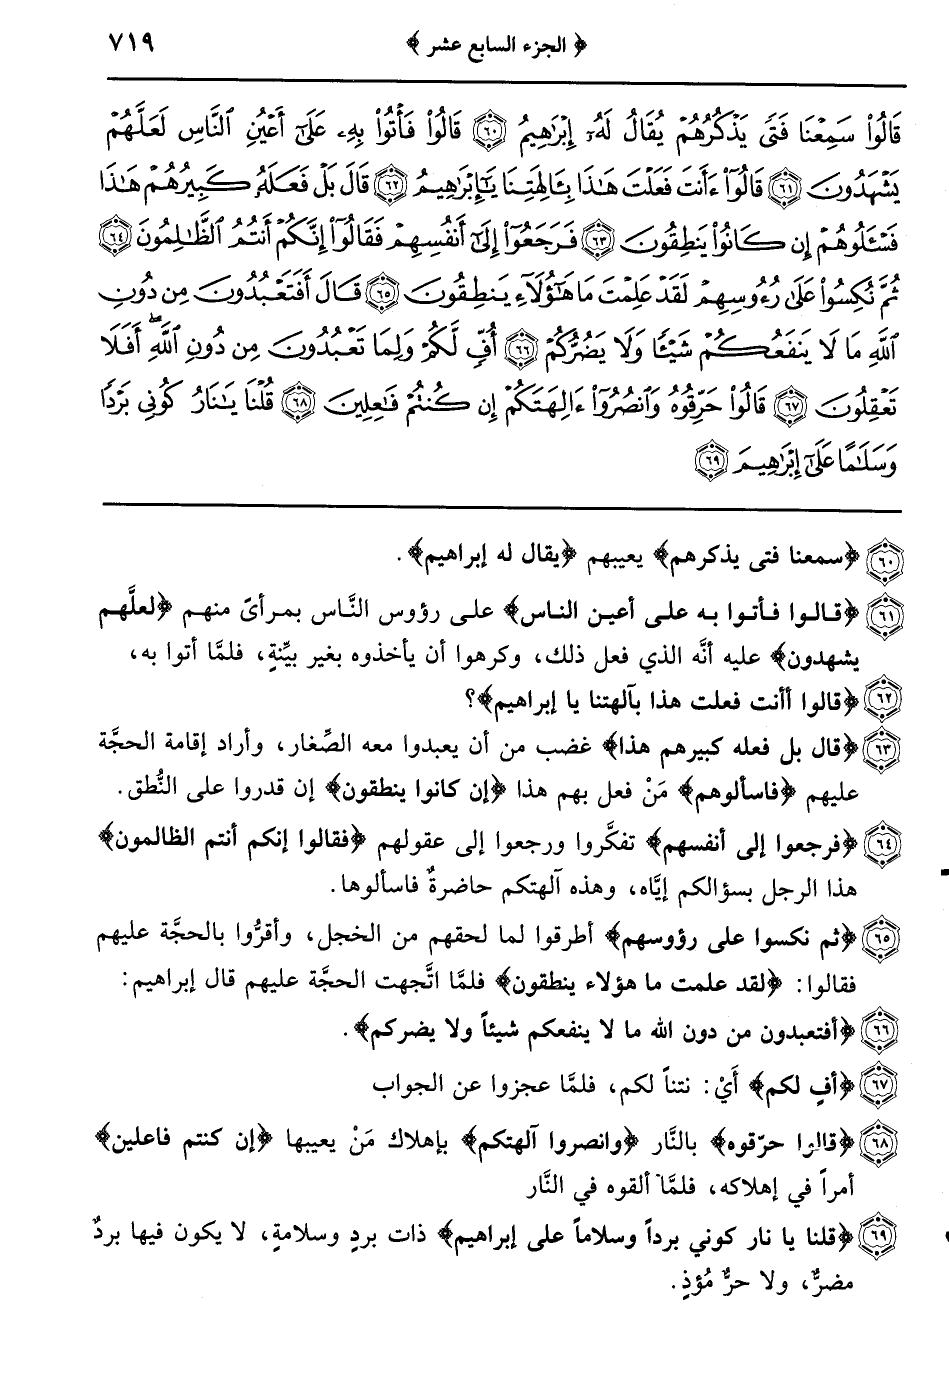 ﴿ الجزء السابع عشر ﴾ ٧١٩
قَالُوا۟ سَمِعْنَا فَتًى يَذْكُرُهُمْ يُقَالُ لَهُۥٓ إِبْرَٰهِيمُ ٦٠ قَالُوا۟ فَأْتُوا۟ بِهِۦ عَلَىٰٓ أَعْيُنِ ٱلنَّاسِ لَعَلَّهُمْ
يَشْهَدُونَ ٦١ قَالُوٓا۟ ءَأَنتَ فَعَلْتَ هَٰذَا بِـَٔالِهَتِنَا يَٰٓإِبْرَٰهِيمُ ٦٢ قَالَ بَلْ فَعَلَهُۥ كَبِيرُهُمْ هَٰذَا
فَسْـَٔلُوهُمْ إِن كَانُوا۟ يَنطِقُونَ ٦٣ فَرَجَعُوٓا۟ إِلَىٰٓ أَنفُسِهِمْ فَقَالُوٓا۟ إِنَّكُمْ أَنتُمُ ٱلظَّٰلِمُونَ ٦٤
ثُمَّ نُكِسُوا۟ عَلَىٰ رُءُوسِهِمْ لَقَدْ عَلِمْتَ مَا هَٰٓؤُلَآءِ يَنطِقُونَ ٦٥ قَالَ أَفَتَعْبُدُونَ مِن دُونِ
ٱللَّهِ مَا لَا يَنفَعُكُمْ شَيْـًٔا وَلَا يَضُرُّكُمْ ٦٦ أُفٍّ لَّكُمْ وَلِمَا تَعْبُدُونَ مِن دُونِ ٱللَّهِ ۖ أَفَلَا
تَعْقِلُونَ ٦٧ قَالُوا۟ حَرِّقُوهُ وَٱنصُرُوٓا۟ ءَالِهَتَكُمْ إِن كُنتُمْ فَٰعِلِينَ ٦٨ قُلْنَا يَٰنَارُ كُونِى بَرْدًا
وَسَلَٰمًا عَلَىٰٓ إِبْرَٰهِيمَ ٦٩
٦٠ ﴿سمعنا فتى يذكرهم﴾ يعيبهم ﴿يقال له إبراهيم﴾.
٦١ ﴿قالوا فأتوا به على أعين الناس﴾ على رؤوس النَّاس بمرأىً منهم ﴿لعلَّهم
يشهدون﴾ عليه أنَّه الذي فعل ذلك، وكرهوا أن يأخذوه بغير بيِّنةٍ، فلمَّا أتوا به،
٦٢ ﴿قالوا أأنت فعلت هذا بآلهتنا يا إبراهيم﴾؟
٦٣ ﴿قال بل فعله كبيرهم هذا﴾ غضب من أن يعبدوا معه الصِّغار، وأراد إقامة الحجَّة
عليهم ﴿فاسألوهم﴾ مَنْ فعل بهم هذا ﴿إن كانوا ينطقون﴾ إن قدروا على النُّطق.
٦٤ ﴿فرجعوا إلى أنفسهم﴾ تفكَّروا ورجعوا إلى عقولهم ﴿فقالوا إنكم أنتم الظالمون﴾
هذا الرجل بسؤالكم إيَّاه، وهذه آلهتكم حاضرةٌ فاسألوها.
٦٥ ﴿ثم نكسوا على رؤوسهم﴾ أطرقوا لما لحقهم من الخجل، وأقرُّوا بالحجَّة عليهم
فقالوا: ﴿لقد علمت ما هؤلاء ينطقون﴾ فلمَّا اتَّجهت الحجَّة عليهم قال إبراهيم:
٦٦ ﴿أفتعبدون من دون الله ما لا ينفعكم شيئاً ولا يضركم﴾.
٦٧ ﴿أفٍ لكم﴾ أَيْ: نتناً لكم، فلمَّا عجزوا عن الجواب
٦٨ ﴿قالوا حرّقوه﴾ بالنَّار ﴿وانصروا آلهتكم﴾ بإهلاك مَنْ يعيبها ﴿إن كنتم فاعلين﴾
أمراً في إهلاكه، فلمَّا ألقوه في النَّار
٦٩ ﴿قلنا يا نار كوني برداً وسلاماً على إبراهيم﴾ ذات بردٍ وسلامةٍ، لا يكون فيها بردٌ
مضرٌّ، ولا حرٌّ مُؤذٍ.